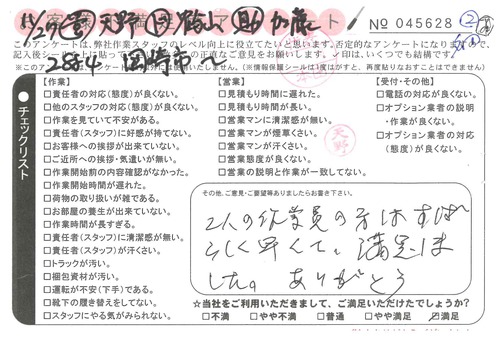 お客様満足アンケート
No 045628 ②
11/29 (営) 天野 (サ) 鶴山 (助) 加藤
このアンケートは、弊社作業スタッフのレベル向上に役立てたいと思います。否定的なアンケートになりますが、
2854 岡崎市 へ
チェックリスト
【作業】
□責任者の対応(態度)が良くない。
□他のスタッフの対応(態度)が良くない。
□作業を見ていて不安がある。
□責任者(スタッフ)に好感が持てない。
□お客様への挨拶が出来ていない。
□ご近所への挨拶・気遣いが無い。
□作業開始前の内容確認がなかった。
□作業開始時間が遅れた。
□荷物の取り扱いが雑である。
□お部屋の養生が出来ていない。
□作業時間が長すぎる。
□責任者(スタッフ)に清潔感が無い。
□責任者(スタッフ)が汗くさい。
□トラックが汚い。
□梱包資材が汚い。
□運転が不安(下手)である。
□靴下の履き替えをしてない。
□スタッフにやる気がみられない。
【営業】
□見積もり時間に遅れた。
□見積もり時間が長い。
□営業マンに清潔感が無い。
□営業マンが煙草くさい。
□営業マンが汗くさい。
□営業態度が良くない。
□営業の説明と作業が一致してない。
天野
【受付・その他】
□電話の対応が良くない。
□オプション業者の説明・作業が良くない。
□オプション業者の対応(態度)が良くない。
その他、ご意見・ご要望等ありましたらお書き下さい。
2人の作業員の方はすばらしく早くて、満足しました。ありがとう
☆当社をご利用いただきまして、ご満足いただけたでしょうか?
□不満 □やや不満 □普通 □やや満足 ☑満足